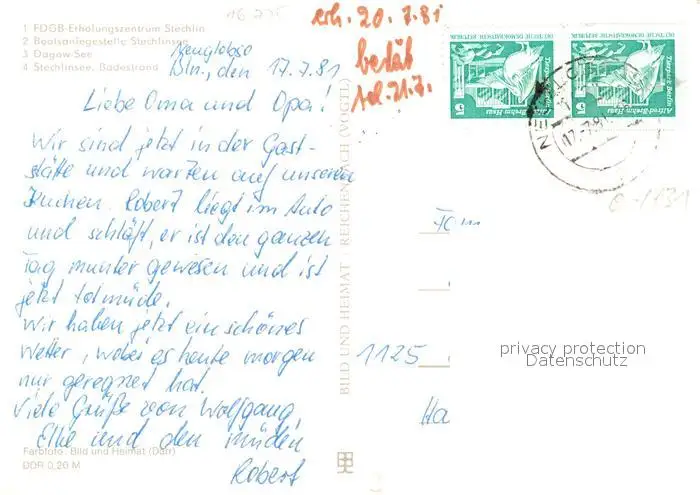 16 775
1 FDGB-Erholungszentrum Stechlin
2 Bootsanlegestelle Stechlinsee
3 Dagow-See
4 Stechlinsee, Badestrand
Neuglobsow
Bln., den 17.7.81
Liebe Oma und Opa!
Wir sind jetzt in der Gast-
stätte und warten auf unseren
Kuchen. Robert liegt im Auto
und schläft, er ist den ganzen
Tag munter gewesen und ist
jetzt totmüde.
Wir haben jetzt ein schönes
Wetter, wobei es heute morgen
nur geregnet hat.
Viele Grüße von Wolfgang,
Elke und den müden
Robert
Farbfoto: Bild und Heimat (Darr)
DDR 0,20 M
BILD UND HEIMAT · REICHENBACH (VOGTL)
erh. 20.7.81
bestät
tel. 21.7.
DEUTSCHE DEMOKRATISCHE REPUBLIK
Tierpark Berlin
Alfred-Brehm-Haus
5
DEUTSCHE DEMOKRATISCHE REPUBLIK
Tierpark Berlin
Alfred-Brehm-Haus
5
17.-7.81
Fam
1125
Ha
privacy protection
Datenschutz